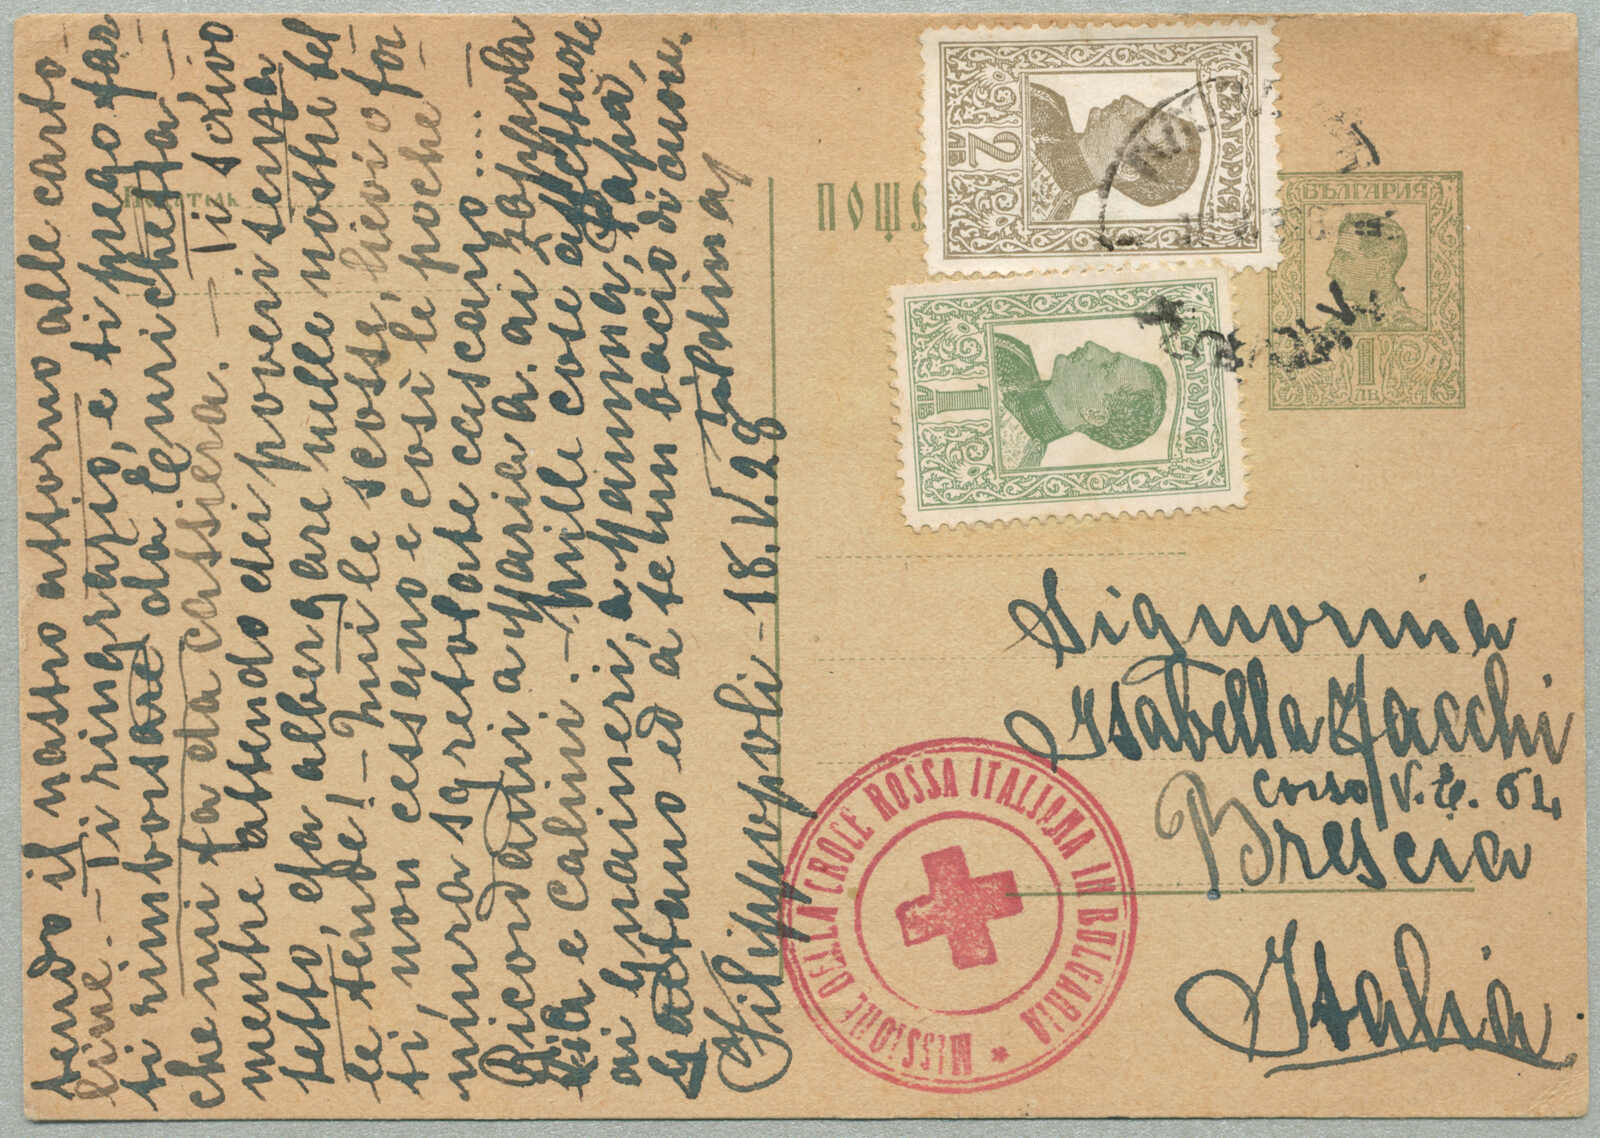 tendo il nastro attorno alle carto-
line. - Ti ringrazio, e ti prego far-
ti rimborsare da Enrichetta
che mi fa da cassiera. - Ti scrivo
mentre attendo dei poveri senza
tetto, da albergare nelle nostre bel-
le tende! - Mille scosse, lievi o for-
ti, non cessano e così le poche
mura sgretolate cascano....
Ricordami a Maria A. ai Zoppola
e Calini. - Mille cose affettuose
ai Gnaineri, a Mamma, Papà,
Gaetano ed a te un bacio di cuore.
Filippopoli - 18.V.28
ПОЩЕ
БЪЛГАРИЯ
2
ЛВ
БЪЛГАРИЯ
1
ЛВ
БЪЛГАРИЯ
1
ЛВ
Signorina
Isabella Facchi
Corso V. E. 64
Brescia
Italia
MISSIONE DELLA CROCE ROSSA ITALIANA IN BULGARIA